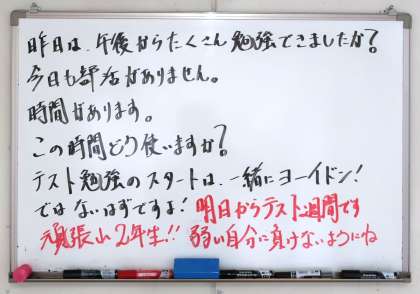 昨日は、午後からたくさん勉強できましたか?
今日も部活がありません。
時間があります。
この時間どう使いますか?
テスト勉強のスタートは、一緒にヨーイドン!
ではないはずですよ! 明日からテスト週間です
頑張れ2年生!! 弱い自分に負けないようにね